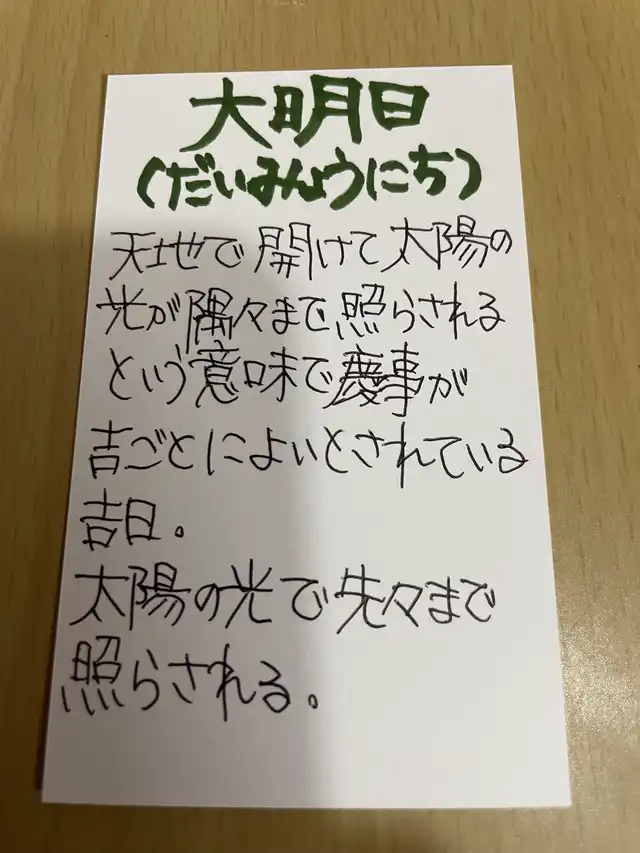 大明日
(だいみんうにち)
天地で開けて太陽の
光が隅々まで照らされる
という意味で慶事が
吉ごとによいとされている
吉日。
太陽の光で先々まで
照らされる。